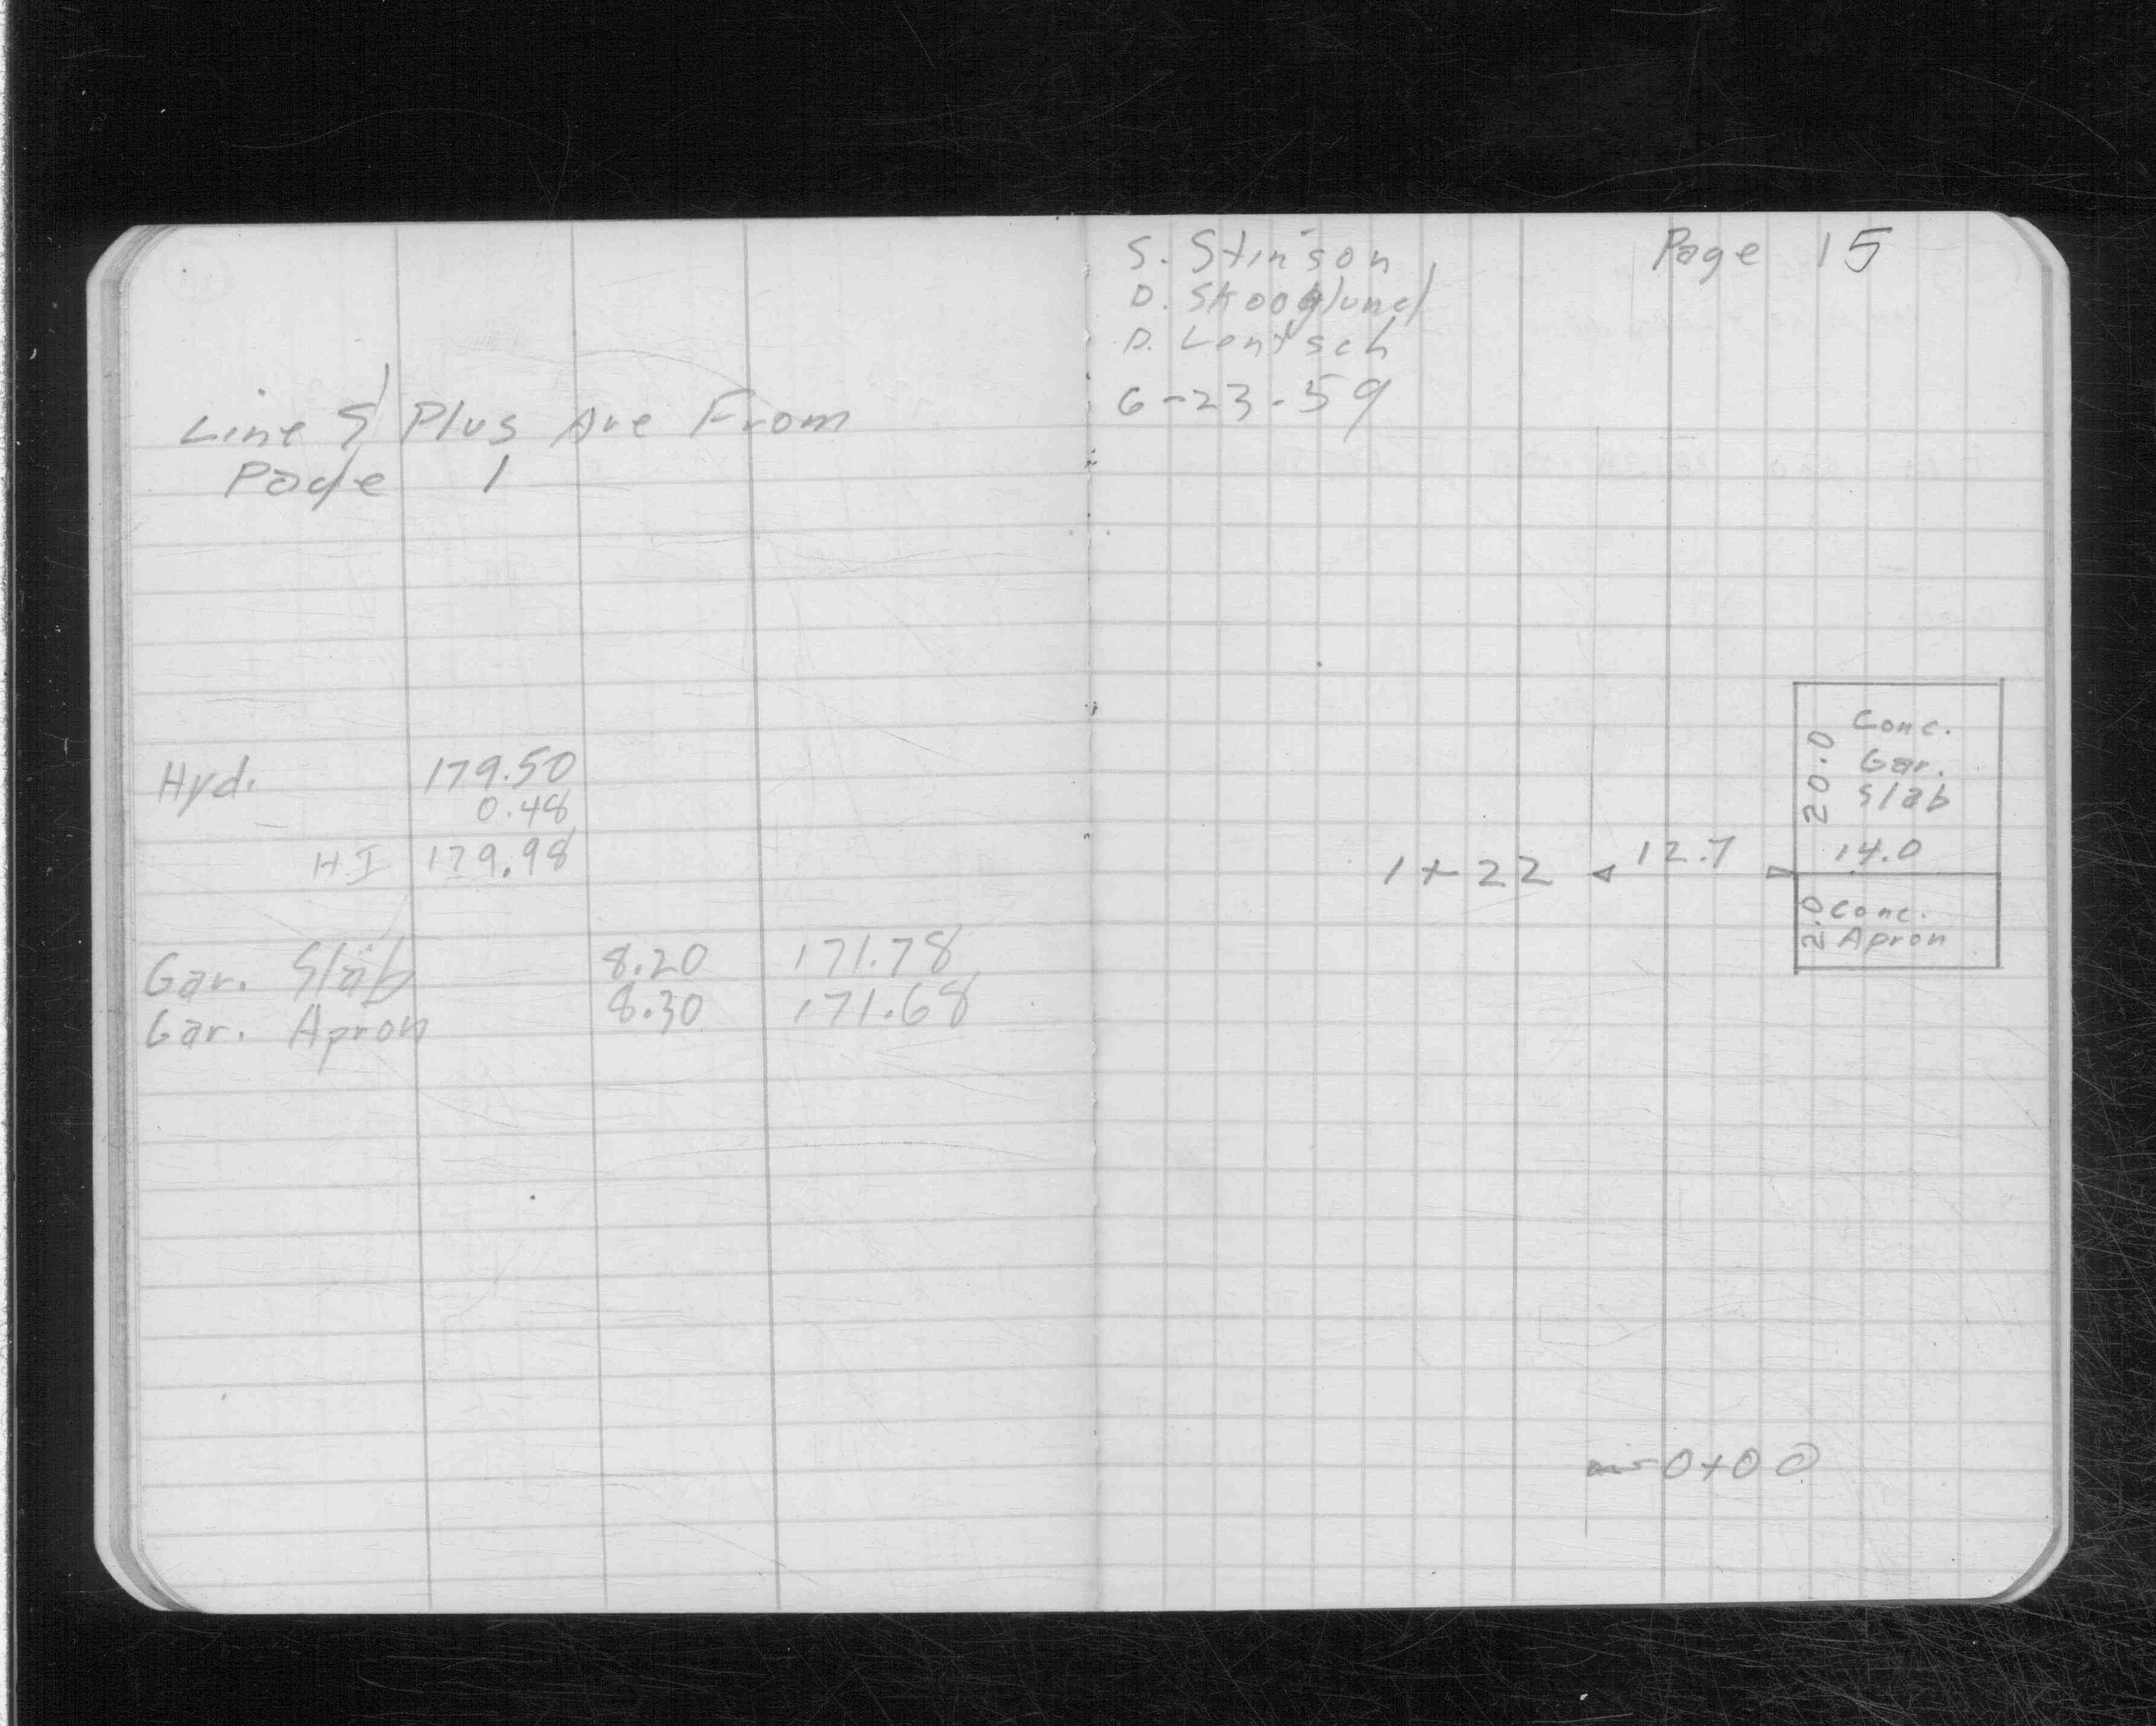 Line & Plus Are From
Page 1
Hyd. 179.50
0.48
H.I. 179.98
Gar. Slab 8.20 171.78
Gar. Apron 8.30 171.68
S. Stinson
D. Skooglund
D. Lentsch
6-23-59
Page 15
Conc.
Gar.
Slab
20.0
14.0
1+22 12.7
2.0
Conc.
Apron
0+00